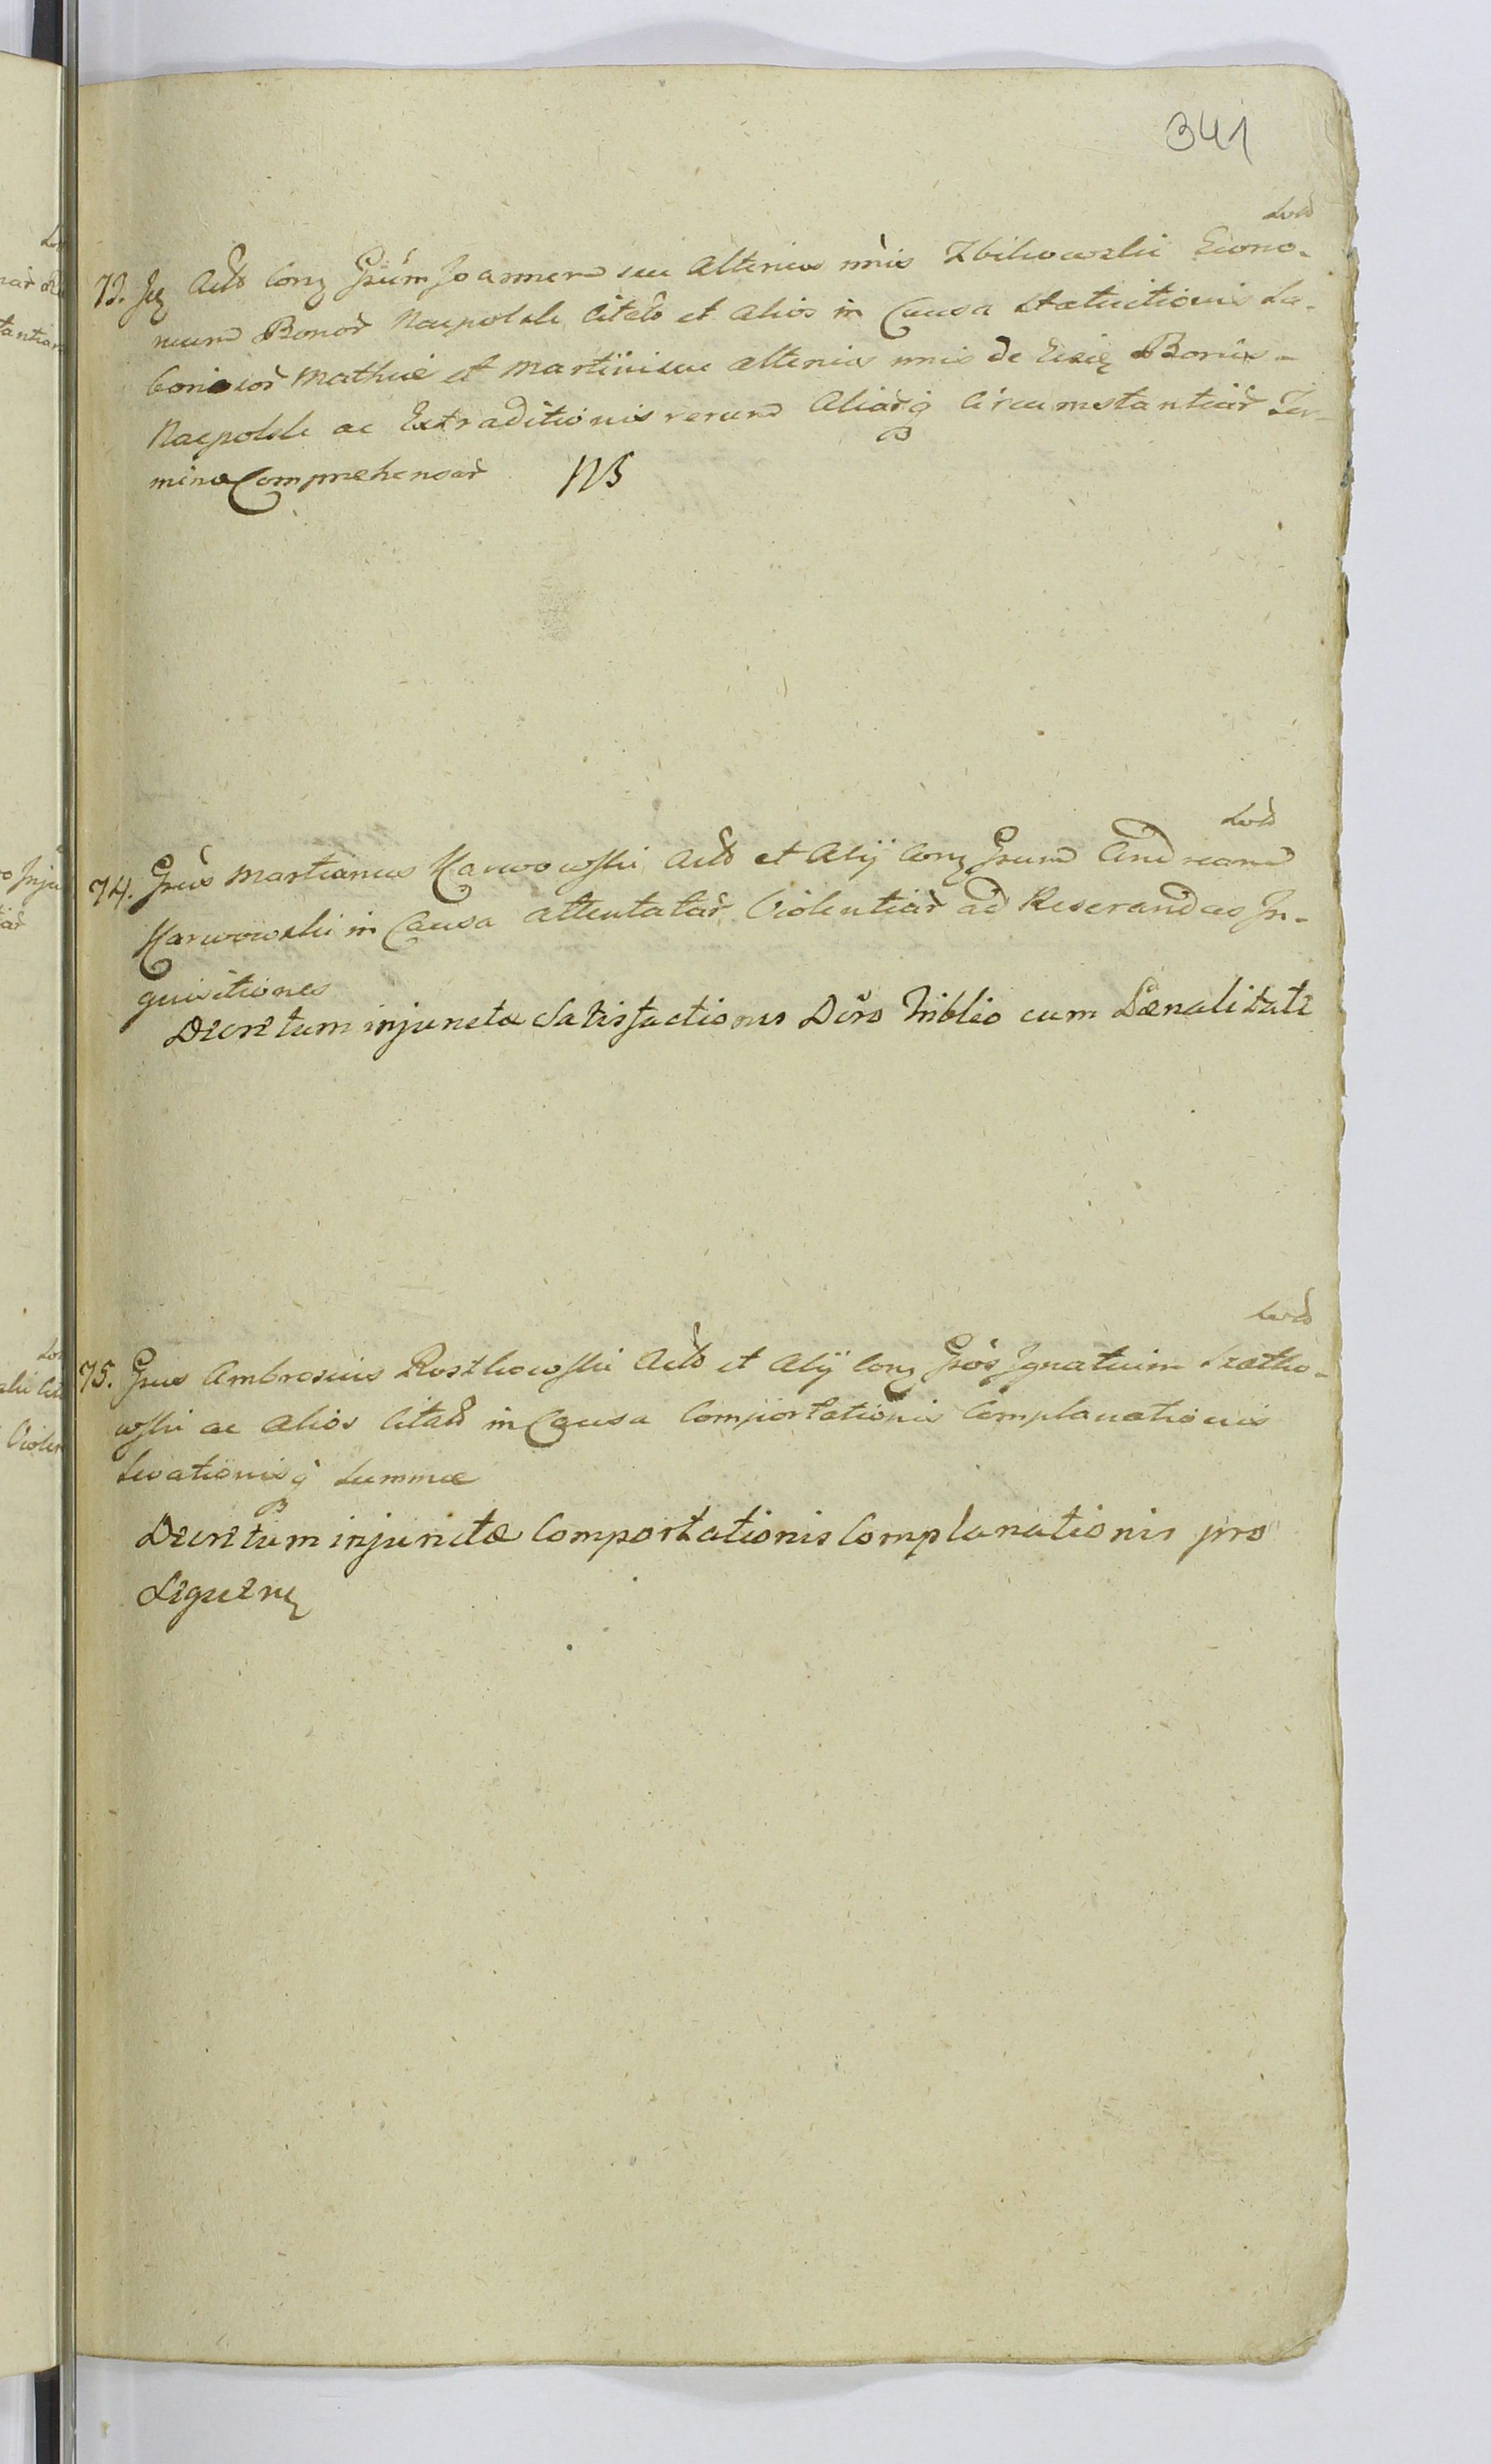 341
Lud
73. Jz Actõ Conz Gsũm Joannem seu alterius nñis Zbikowski Econo-
mum Bonor̃ Naypolsle Citatõ et alios in Causa Statuitionis La-
boriosor̃ Mathiæ et Martini seu alterius nnis de Eisz Bonis
Naypolsle ac Extraditionis rerum Aliarq̃ Circumstantiar̃ Ter-
mino Comprehensar̃ NB
Lud
74. Gsus Martianus Karwowski Actõ et Alij Conz Gsum Andream
Karwowski in Causa attentatar̃ Violentiar̃ ad Reserandas In-
quisitiones
Decretum injunctæ Satisfactionis Dčro Tribli͠o cum Pœnalitate
Lud
75. Gsus Ambrosius Rostkowski Actõ et Alij Conz Gsõs Ignatium
wski ac Alios Citatõ in Causa Comportationis Complanationis
Levationisq̃ Summæ
Decretum injunctæ Comportationis Complanationis pro